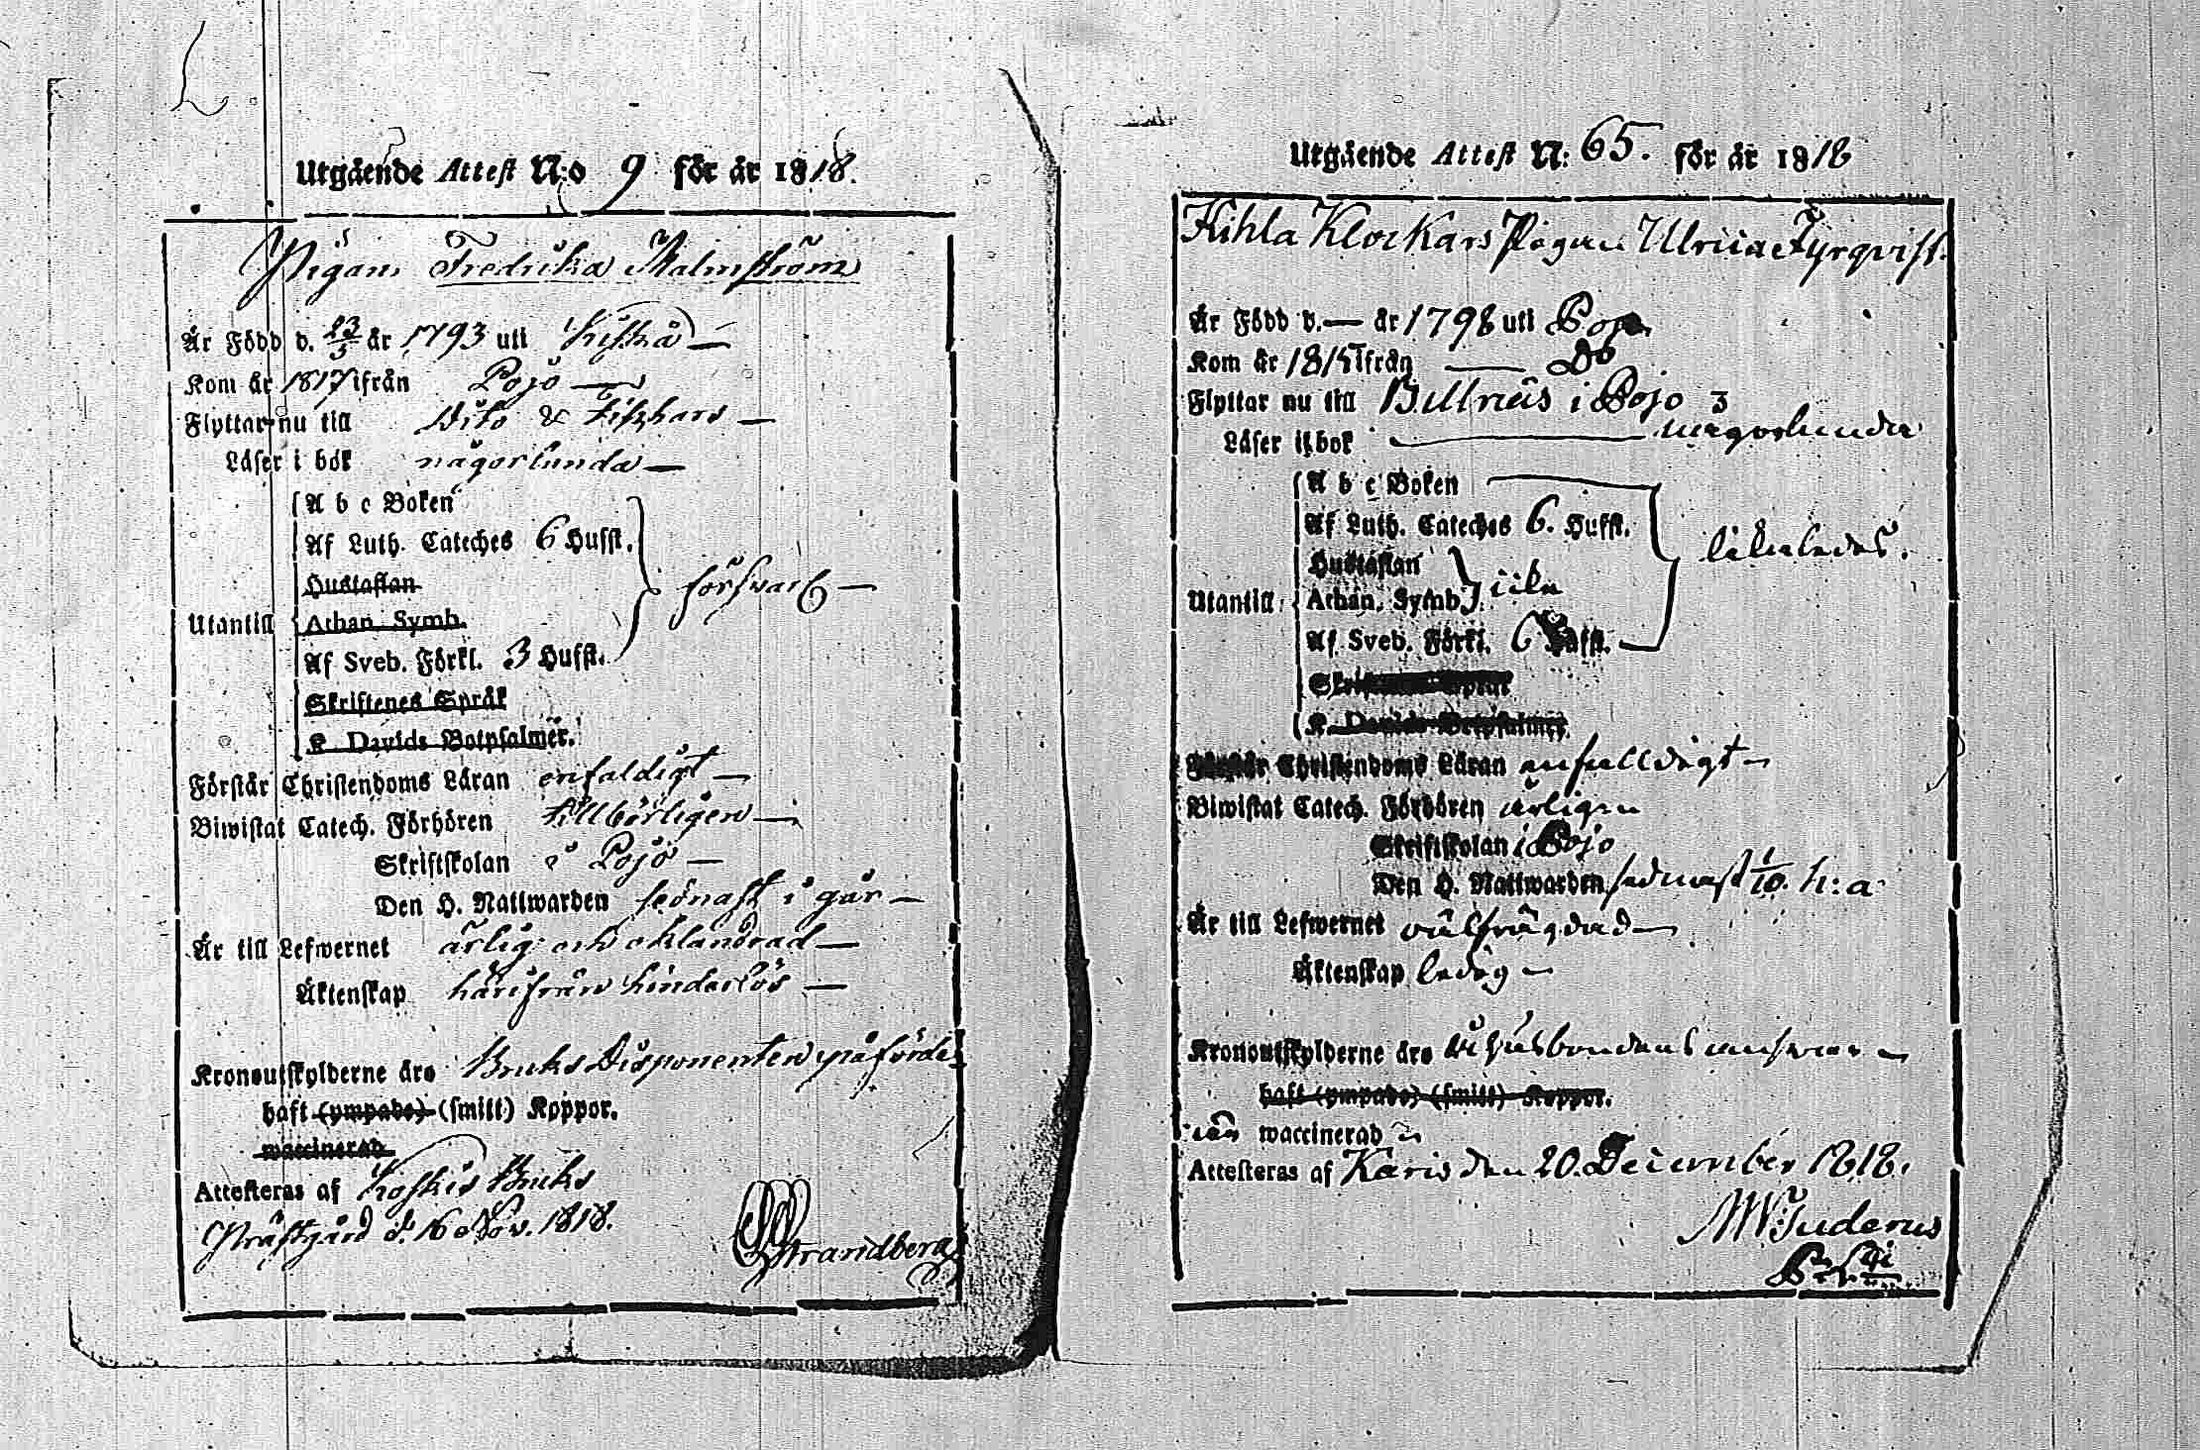 Utgående Attest N:o 9 för år 1818.
Pigan Fredrika Malmström
Är Född d. 23/5 år 1793 uti Kiskå
Kom år 1817 ifrån Pojo
Flyttar nu till Dito & Fiskars
Läser i bok någorlunda
A b c Boken
Af Luth. Cateches 6 Hufst.
Hustaflan
försvarl.
Utantill
Athan. Symb.
Af Sveb. Förkl. 3 Hufst.
Skriftenes Språk
K. Davids Botpsalmer.
Förstår Christendoms Läran enfaldigt
Biwistat Catech. Förhören tillbörligen
Skriftskolan i Pojo
Den H. Nattwarden sednast i går
Är till Lefwernet ärlig och oklandrad
Äktenskap härifrån hinderlös
Kronoutskylderne äro Bruks Disponenten påförde
haft (ympade) (smitt) Koppor.
waccinerad
Attesteras af Koskis Bruks
Prästgård d. 16 Nov. 1818.
Strandberg
Utgående Attest N: 65. för år 1818
Kihla Klockars Pigan Ulrica Fyrqvist.
Är Född d. — år 1798 uti Pojo
Kom år 1815 ifrån — Do
Flyttar nu till Billnäs i Pojo
Läser i bok någorlunda
A b c Boken
Af Luth. Cateches 6. Hufst.
likaledes.
Hustaflan
Utantill
Athan. Symb.
icke
Af Sveb. Förkl. 6 Hufst.
Skriftenes Språk
K. Davids Botpsalmer.
Förstår Christendoms Läran enfalldigt
Biwistat Catech. Förhören årligen
Skriftskolan i Pojo
Den H. Nattwarden sednast 1/10. h: a
Är till Lefwernet välfrägdad
Äktenskap ledig
Kronoutskylderne äro å husbondens answar
haft (ympade) (smitt) Koppor.
är waccinerad
Attesteras af Karis den 20. December 1818.
Juderus